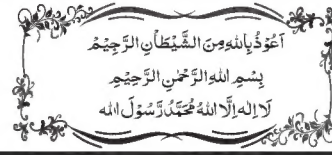 اَعُوْذُ بِاللهِ مِنَ الشَّيْطَانِ الرَّجِيْمِ
بِسْمِ اللهِ الرَّحْمٰنِ الرَّحِيْمِ
لَا اِلٰهَ اِلَّا اللهُ مُحَمَّدٌ رَّسُوْلُ الله